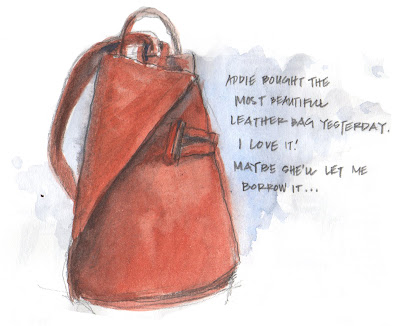 ADDIE BOUGHT THE
MOST BEAUTIFUL
LEATHER BAG YESTERDAY.
I LOVE IT!
MAYBE SHE'LL LET ME
BORROW IT...